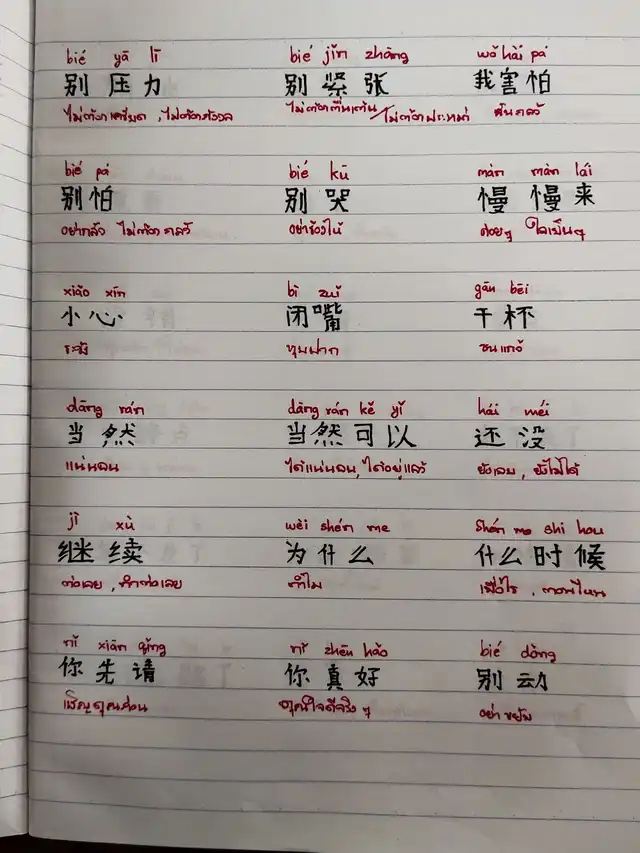 bié yā lī bié jǐn zhāng wǒ hài pá
别压力 别紧张 我害怕
ไม่ต้องเครียด, ไม่ต้องกังวล ไม่ต้องตื่นเต้น/ไม่ต้องประหม่า ฉันกลัว
bié pá bié kū màn màn lái
别怕 别哭 慢慢来
อย่ากลัว ไม่ต้องกลัว อย่าร้องไห้ ค่อยๆ ใจเย็นๆ
xiǎo xīn bì zuǐ gān bēi
小心 闭嘴 干杯
ระวัง หุบปาก ชนแก้ว
dāng rán dāng rán kě yǐ hái méi
当然 当然可以 还没
แน่นอน ได้แน่นอน, ได้อยู่แล้ว ยังเลย, ยังไม่ได้
jì xù wèi shén me Shén me shi hou
继续 为什么 什么时候
ต่อเลย, ทำต่อเลย ทำไม เมื่อไร, ตอนไหน
nǐ xiān qǐng nǐ zhēn hǎo bié dòng
你先请 你真好 别动
เชิญคุณก่อน คุณใจดีจริงๆ อย่าขยับ